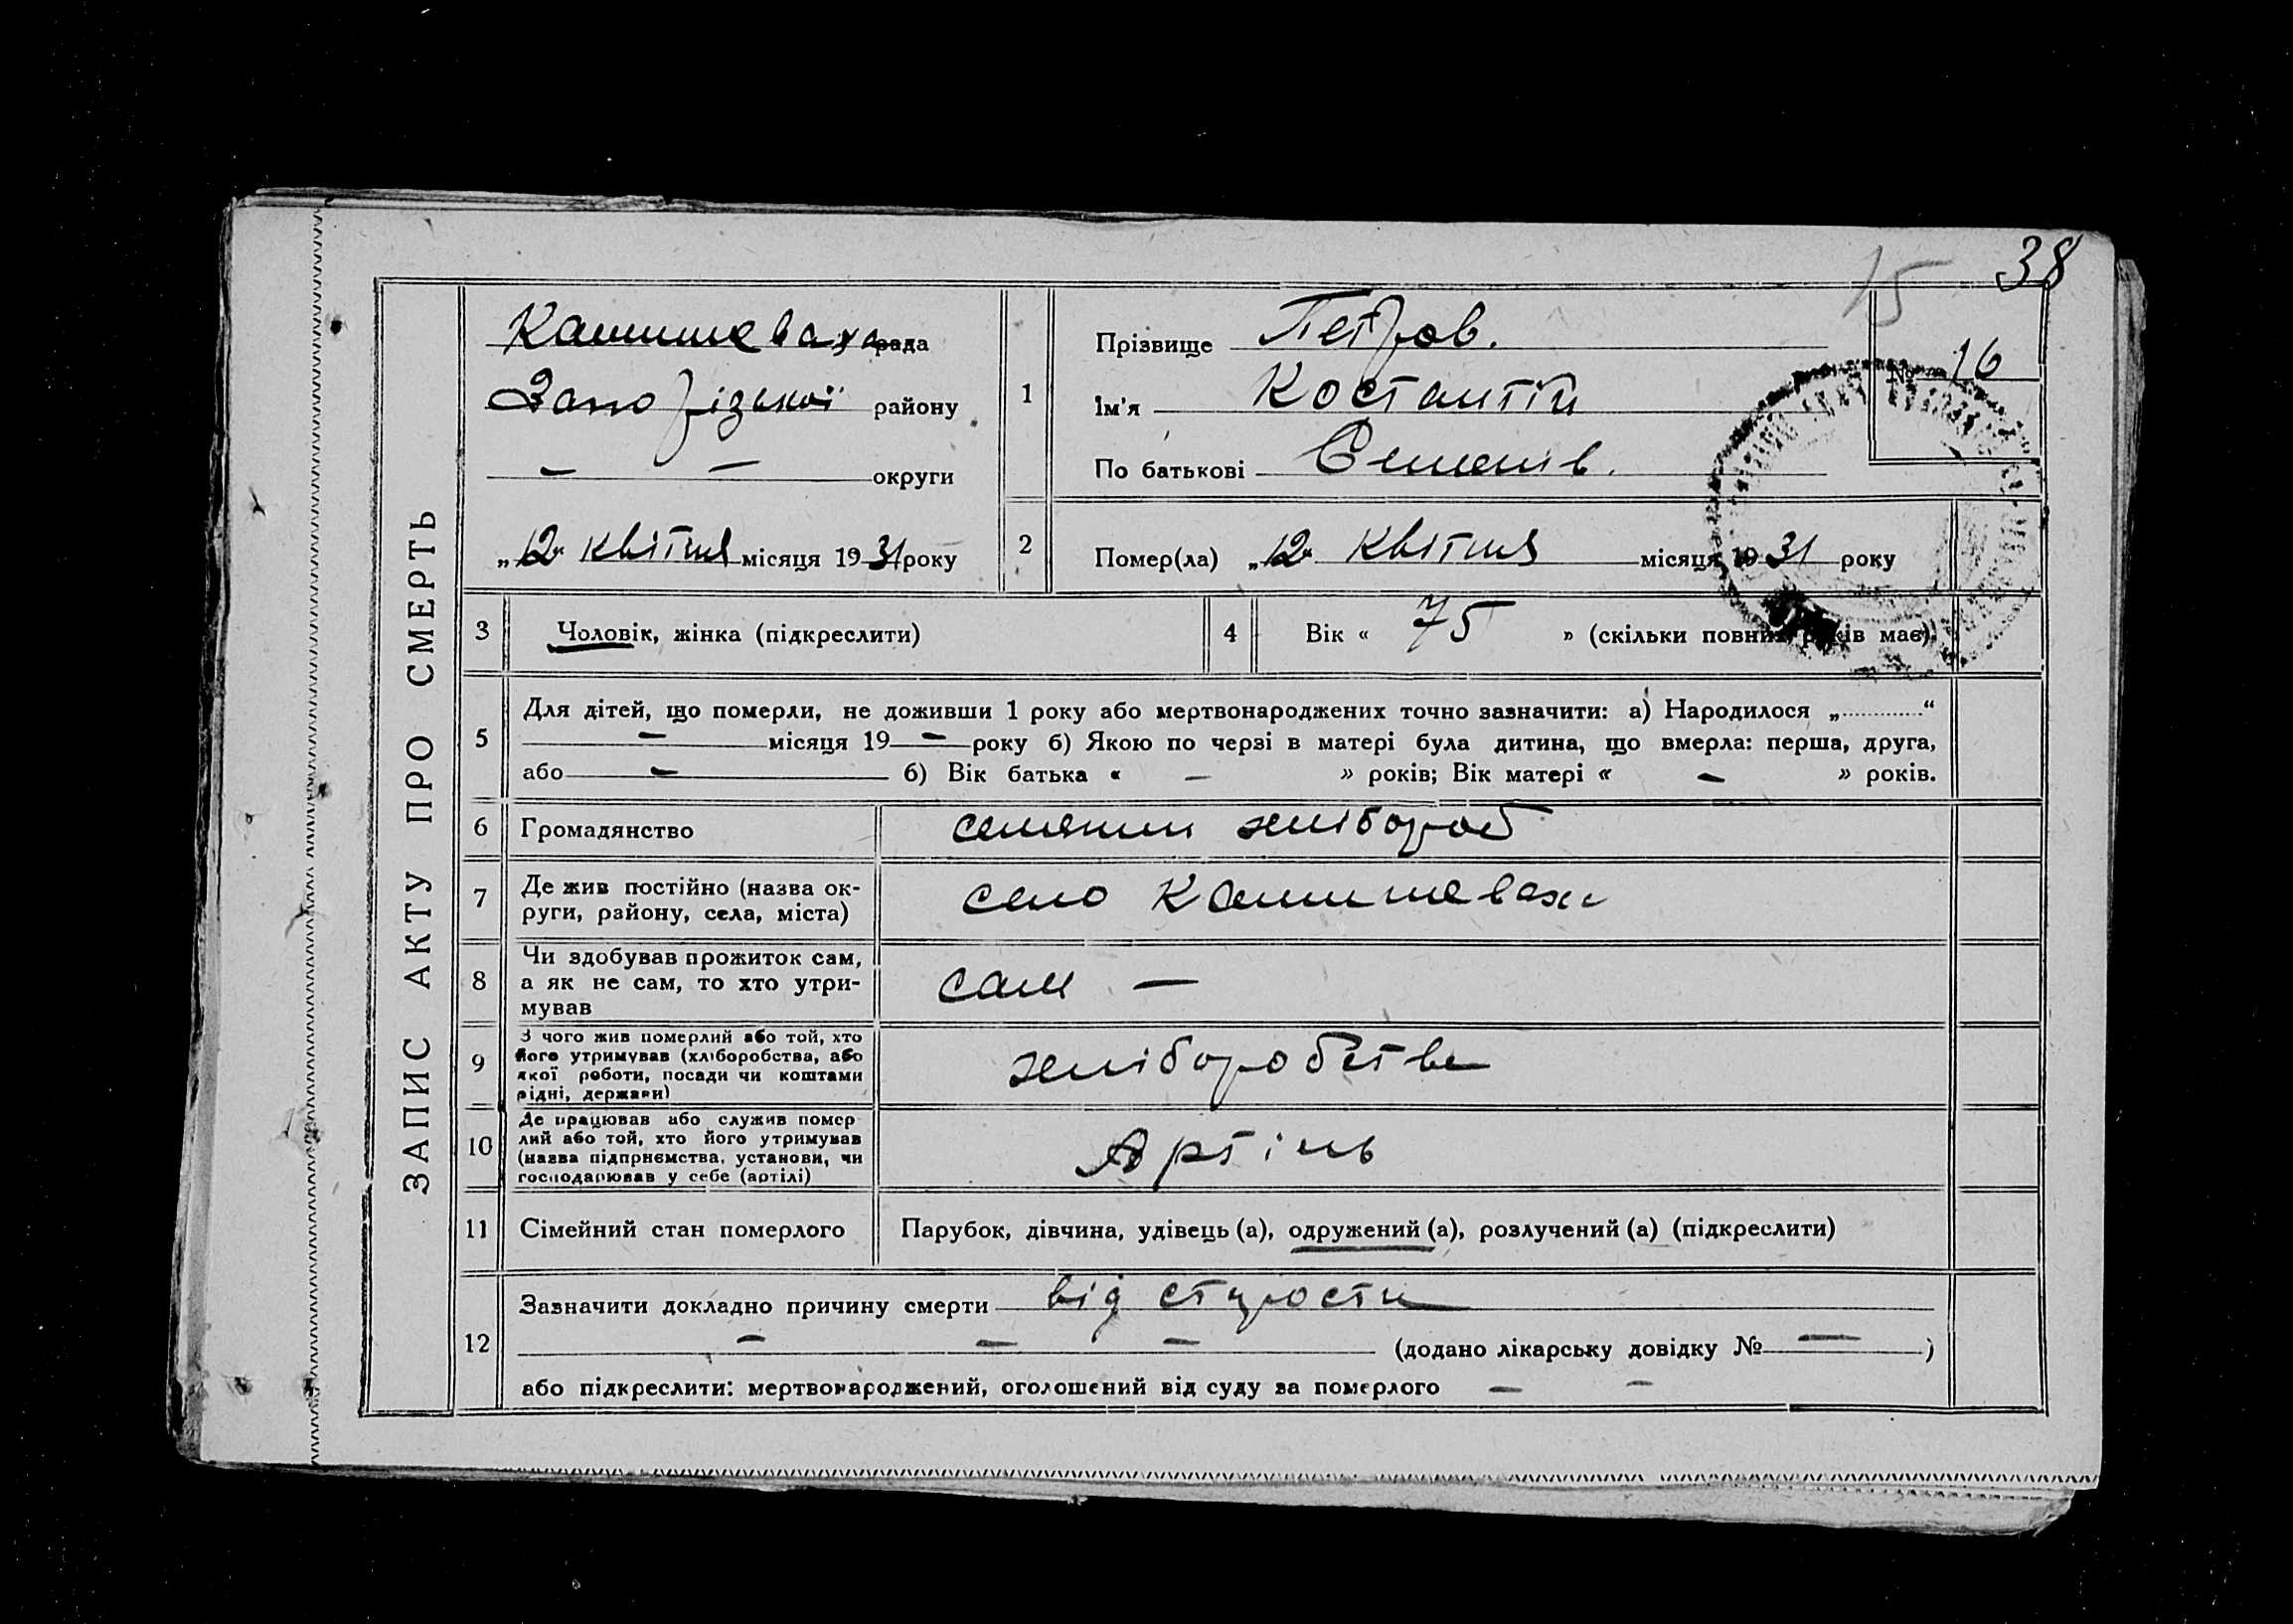 38
15
ЗАПИС АКТУ ПРО СМЕРТЬ
Камишеваха рада
Запорізької району
— — округи
„12" квітня місяця 1931 року
1
Прізвище Петров.
Ім'я Костантін
По батькові Семенів.
№ 16
2
Помер(ла) „12" квітня місяця 1931 року
3 Чоловік, жінка (підкреслити)
4 Вік « 75 » (скільки повних років має)
5
Для дітей, що померли, не доживши 1 року або мертвонароджених точно зазначити: а) Народилося „............“
— місяця 19 — року б) Якою по черзі в матері була дитина, що вмерла: перша, друга,
або — б) Вік батька « — » років; Вік матері « — » років.
6 Громадянство селянин хлібороб
7
Де жив постійно (назва ок-
руги, району, села, міста)
село Камишеваха
8
Чи здобував прожиток сам,
а як не сам, то хто утри-
мував
сам —
9
З чого жив померлий або той, хто
його утримував (хліборобства, або
якої роботи, посади чи коштами
рідні, держави)
хліборобства
10
Де працював або служив помер
лий або той, хто його утримував
(назва підприємства, установи, чи
господарював у себе (артілі)
Артіль
11 Сімейний стан померлого Парубок, дівчина, удівець (а), одружений (а), розлучений (а) (підкреслити)
12
Зазначити докладно причину смерти від старости
— — — (додано лікарську довідку № — )
або підкреслити: мертвонароджений, оголошений від суду за померлого — —